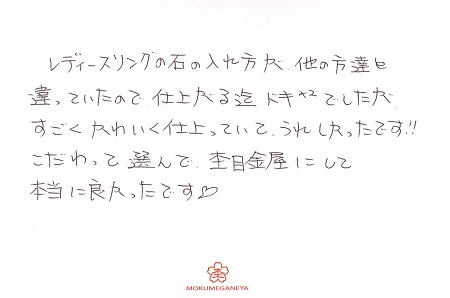 レディースリングの石の入れ方が、他の方達と
違っていたので、仕上がる迄 ドキ××でしたが、
すごく かわいく仕上っていて、うれしかったです!!
こだわって 選んで、杢目金屋にして
本当に良かったです♡
MOKUMEGANEYA